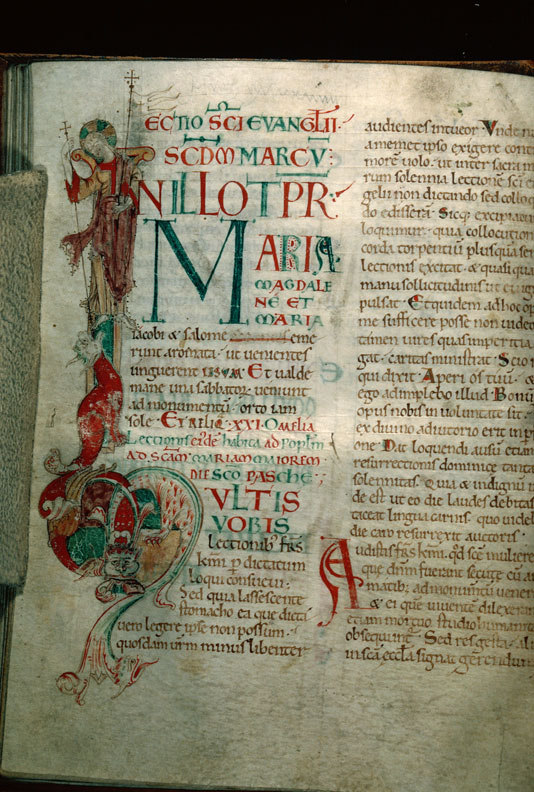 ECTIO SCI EVANGLII.
SCDM MARCV
N ILLO T PR
MARIA
MAGDALE
NE ET
MARIA
iacobi & salome eme
runt aromata. ut uenientes
unguerent Et ualde
mane una sabbatoꝝ. ueniunt
ad monumentū. orto iam
sole. Et reliq. XXI. Omelia
Lectionis eiusdē habita ad poplm
AD SCAM MARIAM MAIOREM
DIE SCO PASCHE.
VLTIS
VOBIS
lectionib. frs
kmi. p dictatum
loqui consueui.
Sed quia lassescente
stomacho ea que dicta
uero legere ipse non possum.
quosdam urm minus libenter
audientes intueor. Unde n
a memet ipso exigere con
morē uolo. ut inter sacra m
rum solennia lectionē sci e
gelii non dictando sed colloq
do edisserā. Sicq; excipia
loquimur. quia collocution
corda torpentiū plus qua ser
lectionis excitat. & quasi qua
manu sollicitudinis ut euig
pulsat. Et quidem ad hoc op
me sufficere posse non uideo
tamen uires quas imperitia
gat. caritas ministrat. Scio
qui dixit. Aperi os tuū. &
ego adimplebo illud. Bonū
opus nobis in uoluntate sit.
ex diuino adiutorio erit in p
one. Dat loquendi ausū etiā
resurrectionis dominice tanta
solennitas. Quia & indignū
de est ut eo die laudes debitas
taceat lingua carnis. quo uidel
die caro resurrexit auctoris.
Audistis frs kmi. qd sce mulieres
que dnm fuerant secute cū a
matib; ad monumtū uener
& ei que uiuente dilexeran
etiam mortuo studio humanit
obsequunt. Sed res gesta. al
in scā eccla signat gerendum